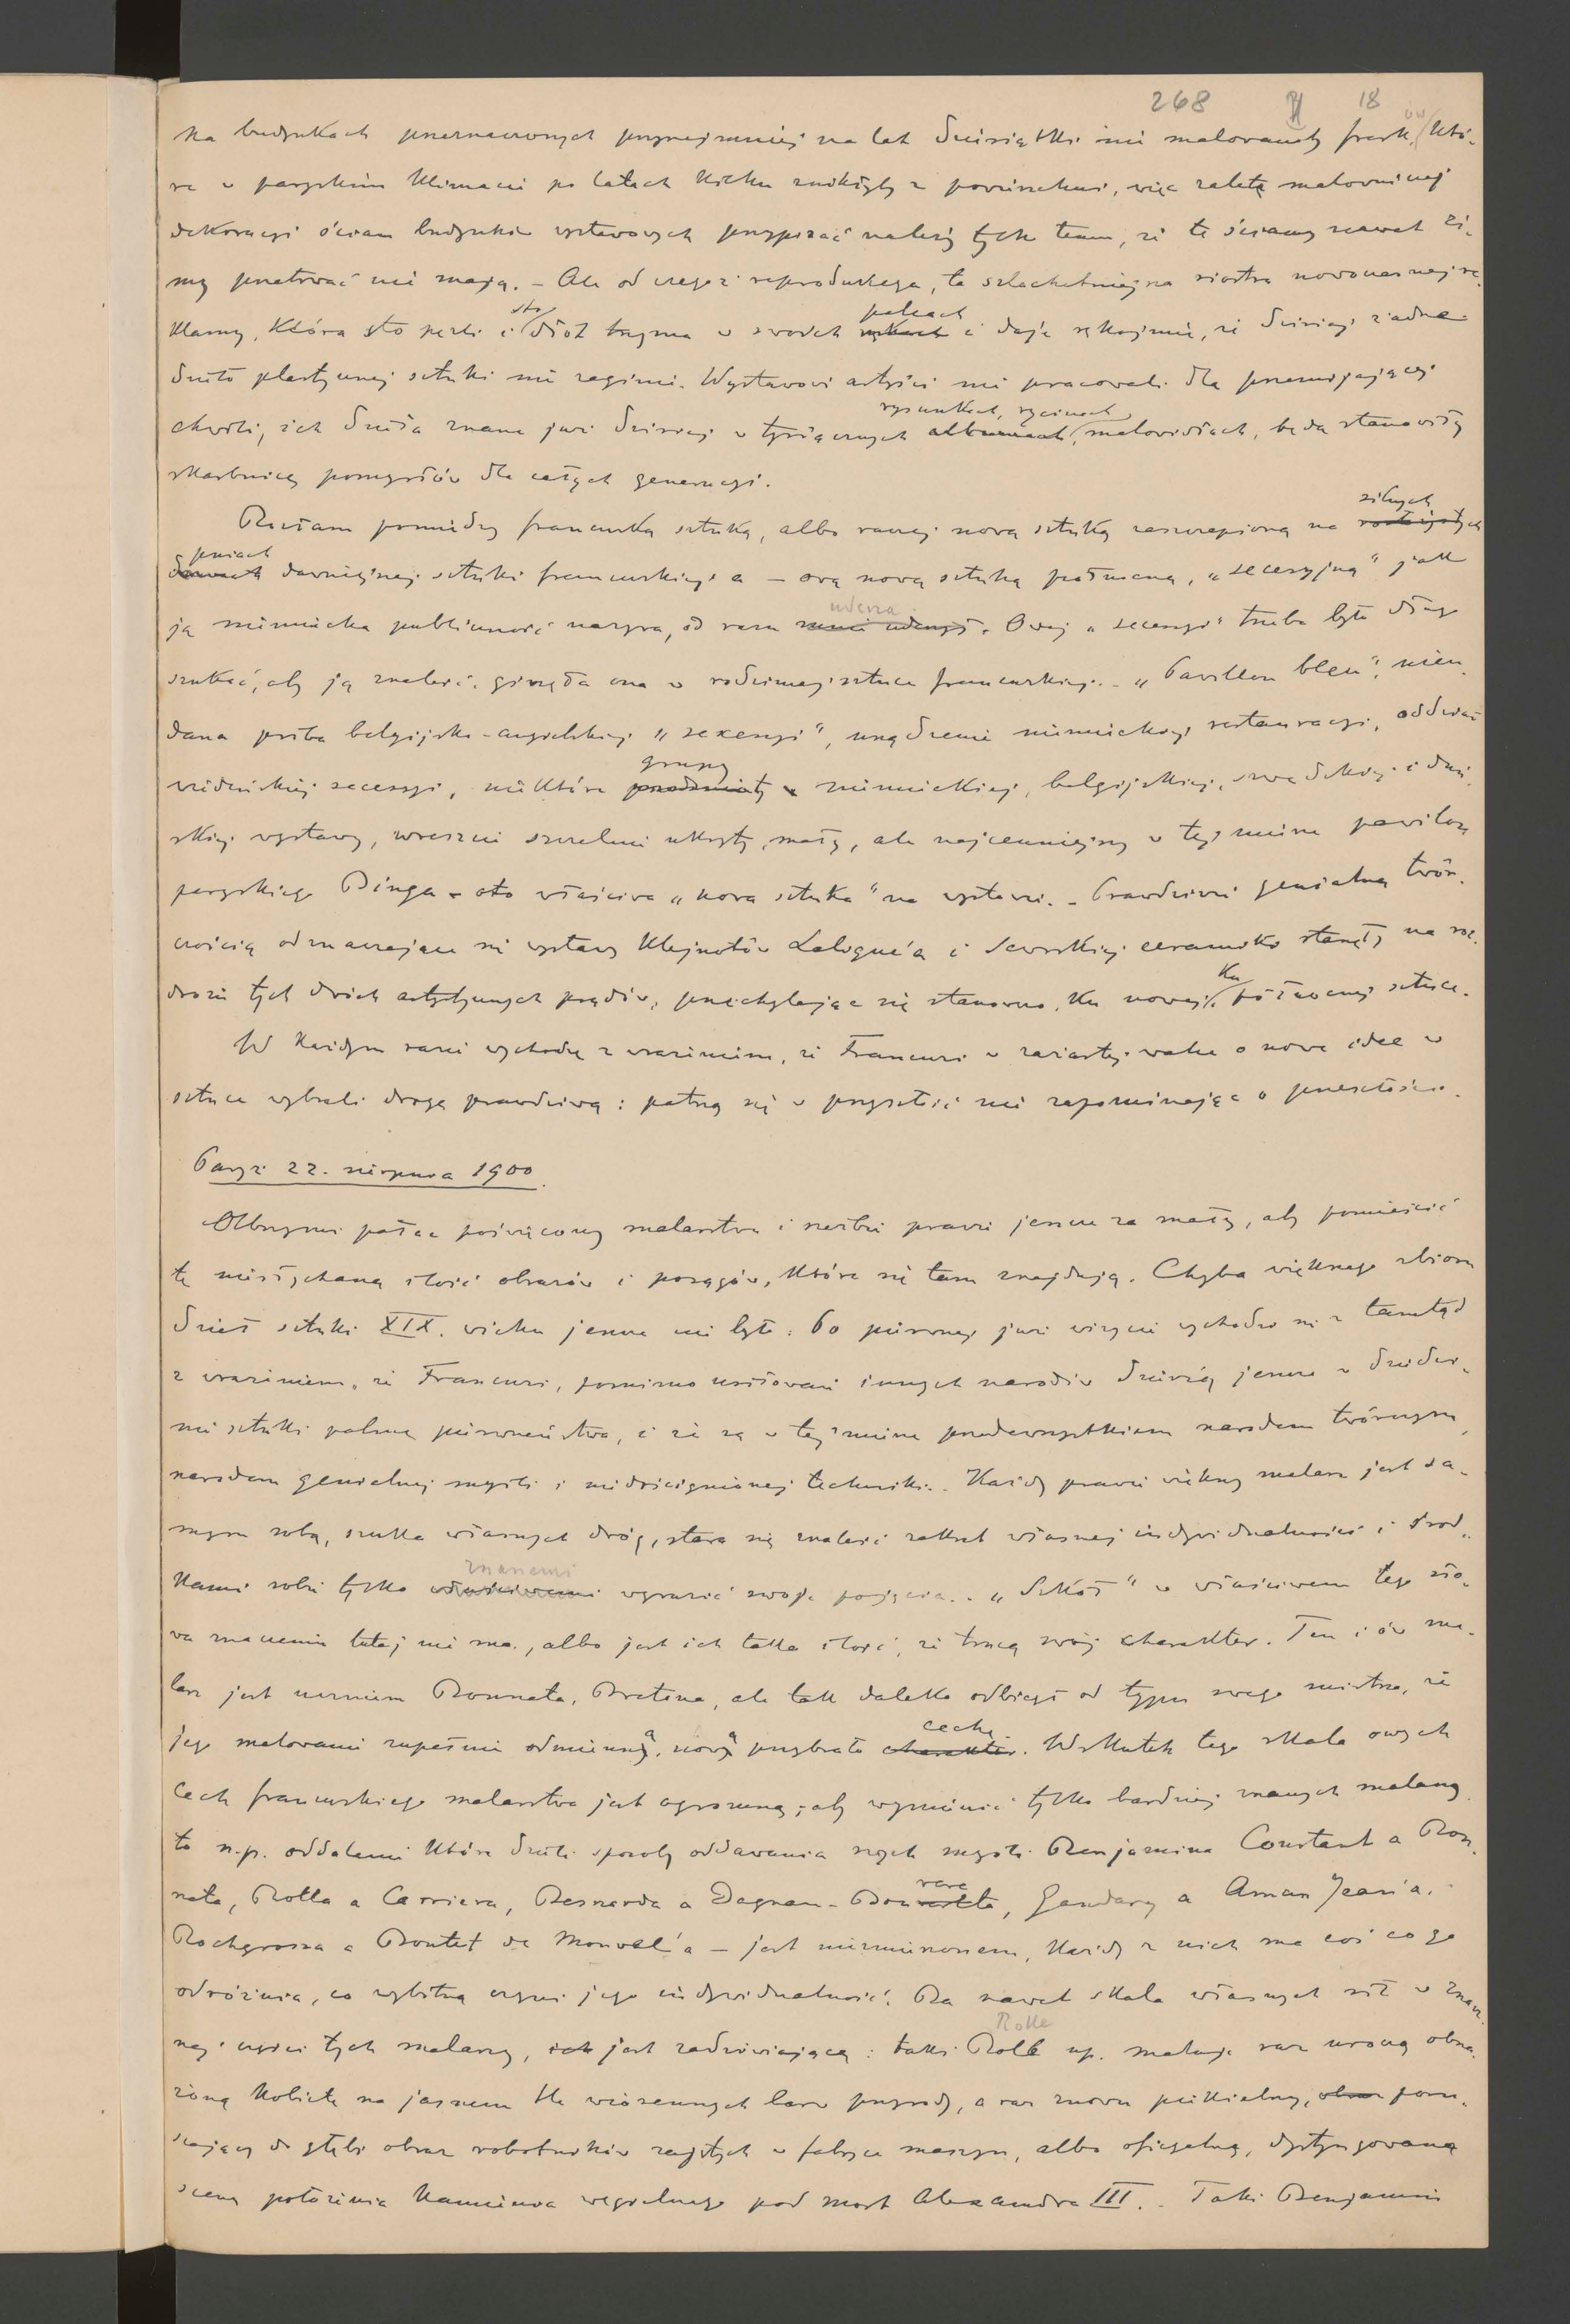 268 18
na budynkach przeznaczonych przynajmniej na lat dziesiątki nie malowanoby fresków, któ-
re w paryskim klimacie po latach kilku znikłyby z powierzchni, więc zaletę malowniczej
dekoracyi ścian budynków wystawowych przypisać należy tylko temu, że te ściany nawet zi-
my przetrwać nie mają. – Ale od czegoż reprodukcya, ta szlachetniejsza siostra nowoczesnej re-
klamy, która sto perli i sto dłót trzyma w swoich rękach palcach i daje rękojmię, że dzisiaj żadne
dzieło plastycznej sztuki nie zaginie. Wystawowi artyści nie pracowali dla przemijającej
chwili, ich dzieła znane już dzisiaj w tysiącznych albumach rysunkach, rycinach, malowidłach, będą stanowiły
skarbnicę pomysłów dla całych generacyi.
Rozłam pomiędzy francuską sztuką, albo raczej nową sztuką zaszczepioną na silnych
pniach dawniejszej sztuki francuskiej a – ową nową sztuką północną, „secesyjną" jak
ją niemiecka publiczność nazywa, od razu uderza. Owej „secesyi" trzeba było długo
szukać, aby ją znaleść, ginęła ona w rodzimej sztuce francuskiej. – „Pavillon bleu", nieu-
dana próba belgijsko-angielskiej „secesyi", urządzenie niemieckiej restauracyi, oddział
wiedeńskiej secesyi, niektóre przedmioty grupy w niemieckiej, belgijskiej, szwedzkiej i duń-
skiej wystawy, wreszcie szczelnie ukryty, mały, ale najcenniejszy w tej mierze pawilon
paryskiego Binga – oto właściwa „nowa sztuka" na wystawie. – Prawdziwie genialną twór-
czością odznaczające się wystawy klejnotów Lalique'a i Sewrskiej ceramiki stanęły na roz-
drożu tych dwóch artystycznych prądów, przechylając się stanowczo, ku nowej, ku północnej sztuce.
W każdym razie wychodzę z wrażeniem, że Francuzi w zażartej walce o nowe idee w
sztuce wybrali drogę prawdziwą: patrzą się w przyszłość nie zapominając o przeszłości.
Paryż 22. sierpnia 1900.
Olbrzymi pałac poświęcony malarstwu i rzeźbie prawie jeszcze za mały, aby pomieścić
tę niesłychaną ilość obrazów i posągów, które się tam znajdują. Chyba większego zbioru
dzieł sztuki XIX. wieku jeszcze nie było. Po pierwszej już wizycie wychodzi się z tamtąd
z wrażeniem, że Francuzi, pomimo usiłowań innych narodów dzierżą jeszcze w dziedzi-
nie sztuki palmę pierwszeństwa, i że są w tej mierze przedewszystkiem narodem twórczym,
narodem genialnej myśli i niedoścignionej techniki. Każdy prawie większy malarz jest sa-
mym sobą, szuka własnych dróg, stara się znaleść zakres własnej indywidualności i środ-
kami sobie tylko właściwemi znanemi wyrazić swoje pojęcia. „Szkół" w właściwem tego sło-
wa znaczeniu tutaj nie ma, albo jest ich taka ilość, że tracą swój charakter. Ten i ów ma-
larz jest uczniem Bonnata, Bretona, ale tak daleko odbiegł od typu swego mistrza, że
jego malowanie zupełnie odmienną, nową przybrało charakter cechę. Wskutek tego skala owych
cech francuskiego malarstwa jest ogromną; aby wymienić tylko bardziej znanych malarzy
to n.p. oddalenie które dzieli sposoby oddawania swych myśli Benjamina Constant a Bon-
nata, Rolla a Carriera, Besnarda a Dagnan-Bouvereta, Gandary a Aman Jean'a,
Rochgrossa a Boutet de Monvel'a – jest niezmierzonem, każdy z nich ma coś co go
odróżnia, co wybitną czyni jego indywidualność. Ba nawet skala własnych sił w znacz-
nej części tych malarzy, jest zadziwiającą: taki Rolle Roll np. maluje raz uroczą obna-
żoną kobietę na jasnem tle wiosennych barw przyrody, a raz znowu piekielny, obraz poru-
szający do głębi obraz robotników zajętych w fabryce maszyn, albo oficyalną, dystyngowaną
scenę położenia kamienia węgielnego pod most Alexandra III. – Taki Benjamin